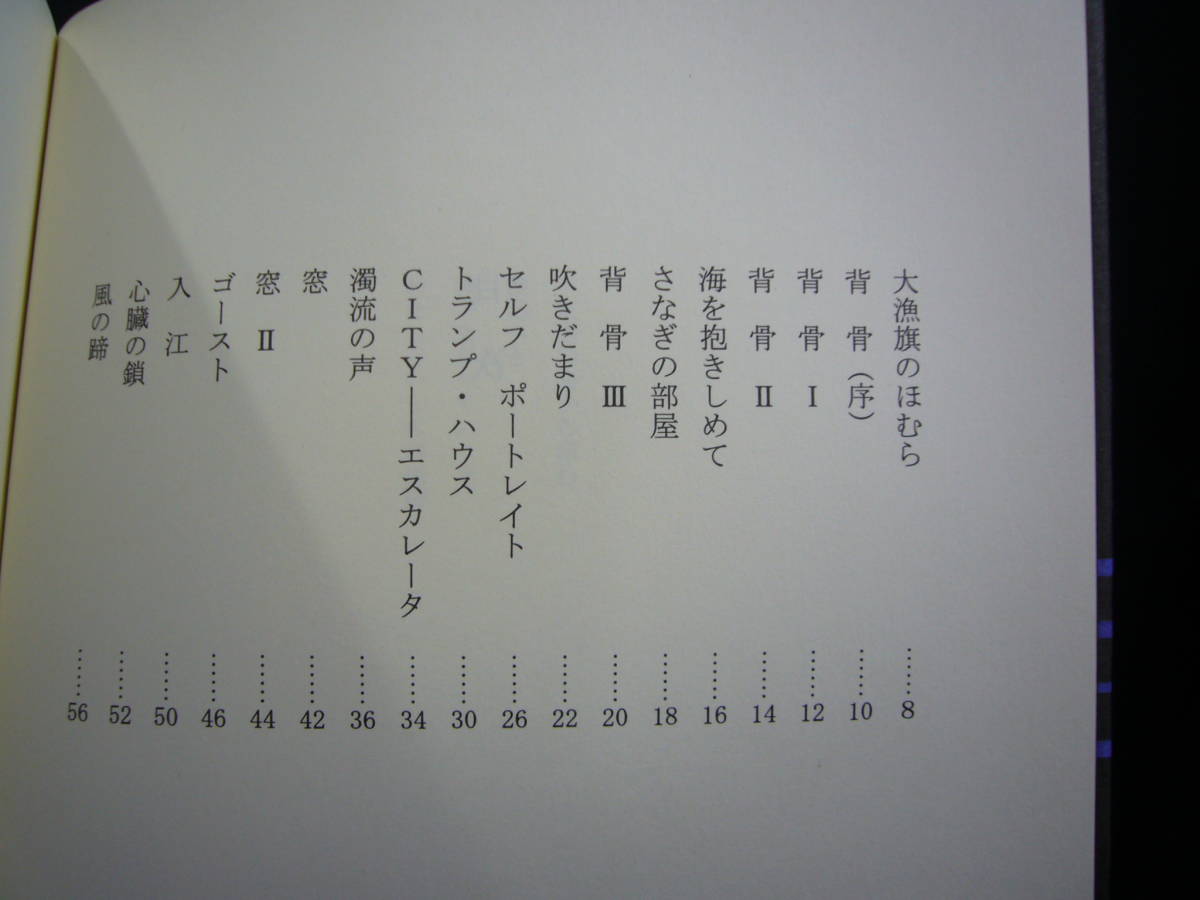 大漁旗のほむら……8
背骨(序)……10
背骨Ⅰ……12
背骨Ⅱ……14
海を抱きしめて……16
さなぎの部屋……18
背骨Ⅲ……20
吹きだまり……22
セルフ ポートレイト……26
トランプ・ハウス……30
CITY――エスカレータ……34
濁流の声……36
窓……42
窓Ⅱ……44
ゴースト……46
入江……50
心臓の鎖……52
風の蹄……56